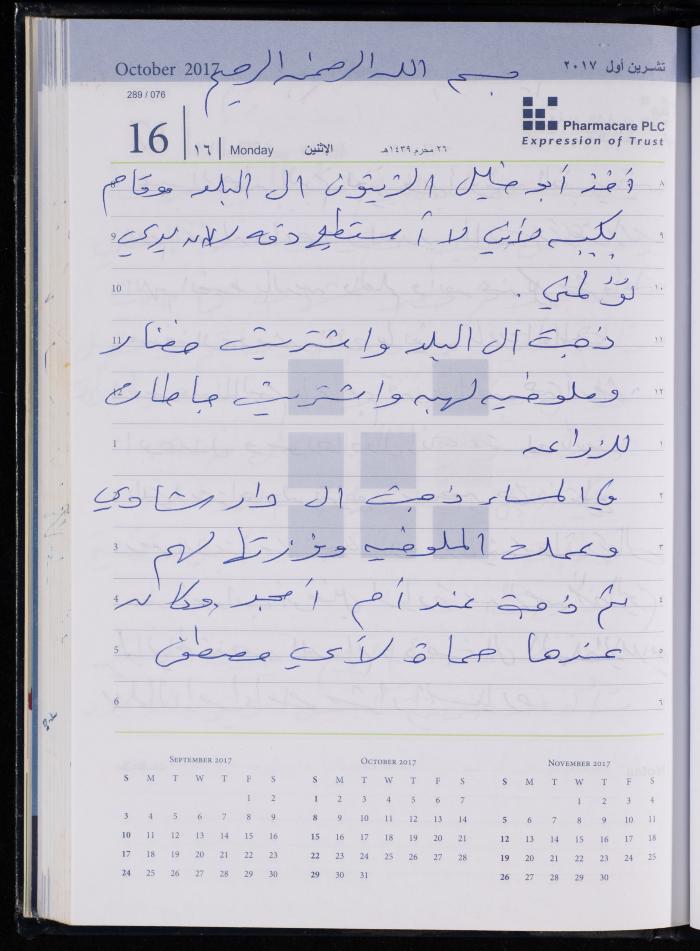 October 2017 بسم الله الرحمن الرحيم تشرين أول ٢٠١٧
289 / 076
16 ١٦ Monday الإثنين ٢٦ محرم ١٤٣٩هـ
Pharmacare PLC
Expression of Trust
أخذ أبو خليل الزيتون الى البلد وقام ٨
9 بكبسه لأني لا أستطيع دقه لان يدي ٩
10 تؤلمني . ١٠
11 ذهبت الى البلد واشتريت ١١
12 وملوخيه لهبه واشتريت جاطات ١٢
1 للزراعه ١
2 في المساء ذهبت الى دار شادي ٢
3 وعملت الملوخيه وفرزتها لهم ٣
4 ثم ذهبت عند أم أمجد وكان ٤
5 عندها حماة لأبي مصطفى ٥
6 ٦
September 2017
S M T W T F S
1 2
3 4 5 6 7 8 9
10 11 12 13 14 15 16
17 18 19 20 21 22 23
24 25 26 27 28 29 30
October 2017
S M T W T F S
1 2 3 4 5 6 7
8 9 10 11 12 13 14
15 16 17 18 19 20 21
22 23 24 25 26 27 28
29 30 31
November 2017
S M T W T F S
1 2 3 4
5 6 7 8 9 10 11
12 13 14 15 16 17 18
19 20 21 22 23 24 25
26 27 28 29 30